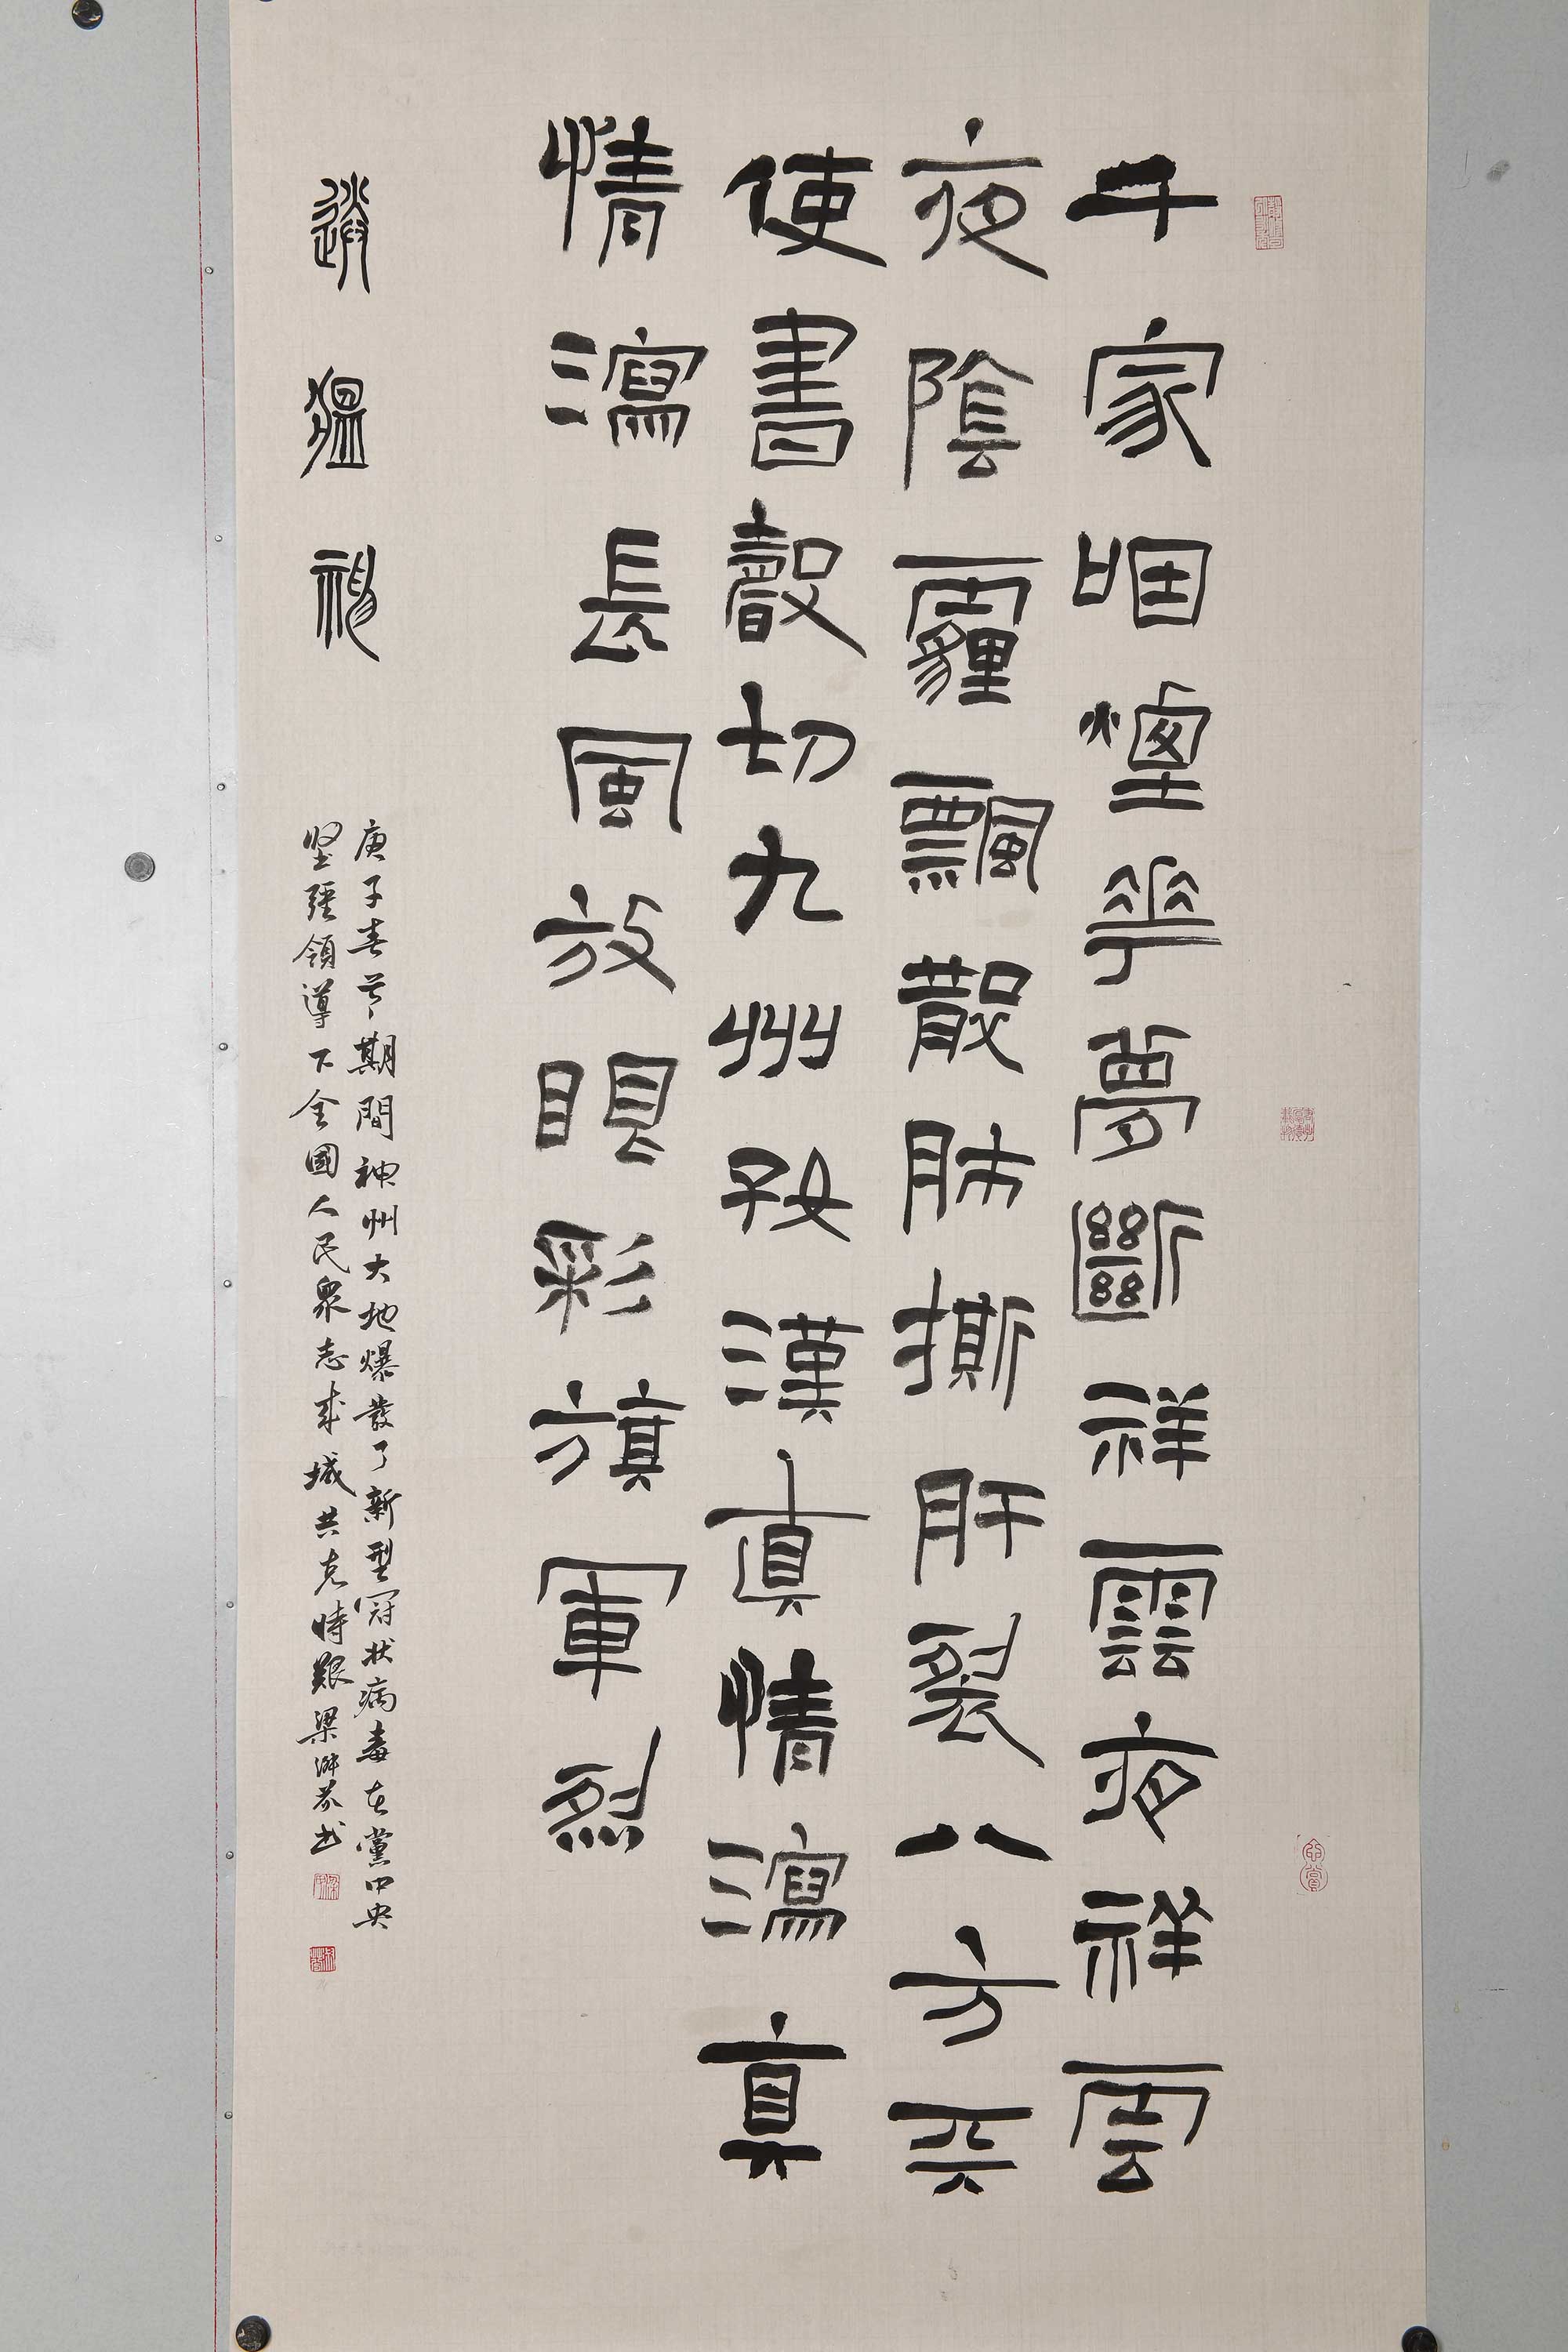 千家咽煙華夢斷祥雲夜祥雲
夜陰霾飄散肺撕肝裂八方共
使書聲切九州孜漢真情瀉真
情瀉長風放眼彩旗軍烈
送瘟神
庚子春节期間神州大地爆發了新型冠状病毒在黨中央
坚強領導下全國人民衆志成城共克時艱梁
书